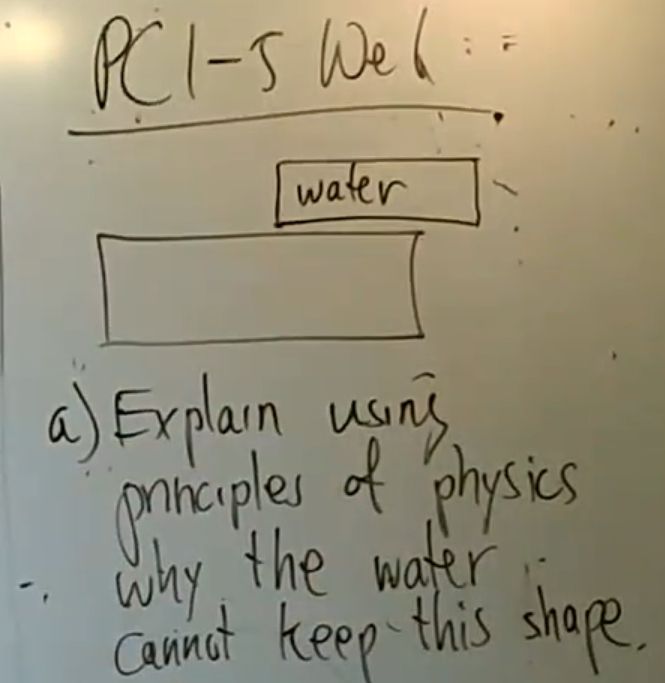 PC1-5 Wed
water
a) Explain using
principles of physics
why the water
cannot keep this shape.